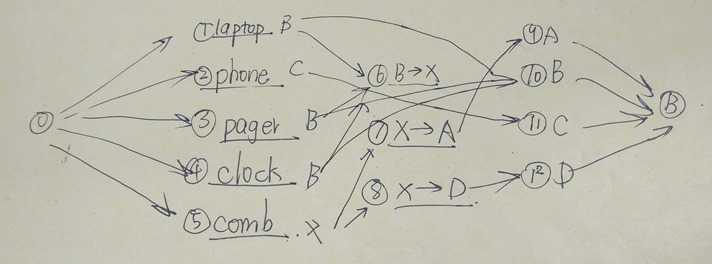 0
①laptop B
②phone C
③pager B
④clock B
⑤comb X
⑥B→X
⑦X→A
⑧X→D
⑨A
⑩B
⑪C
⑫D
⑬